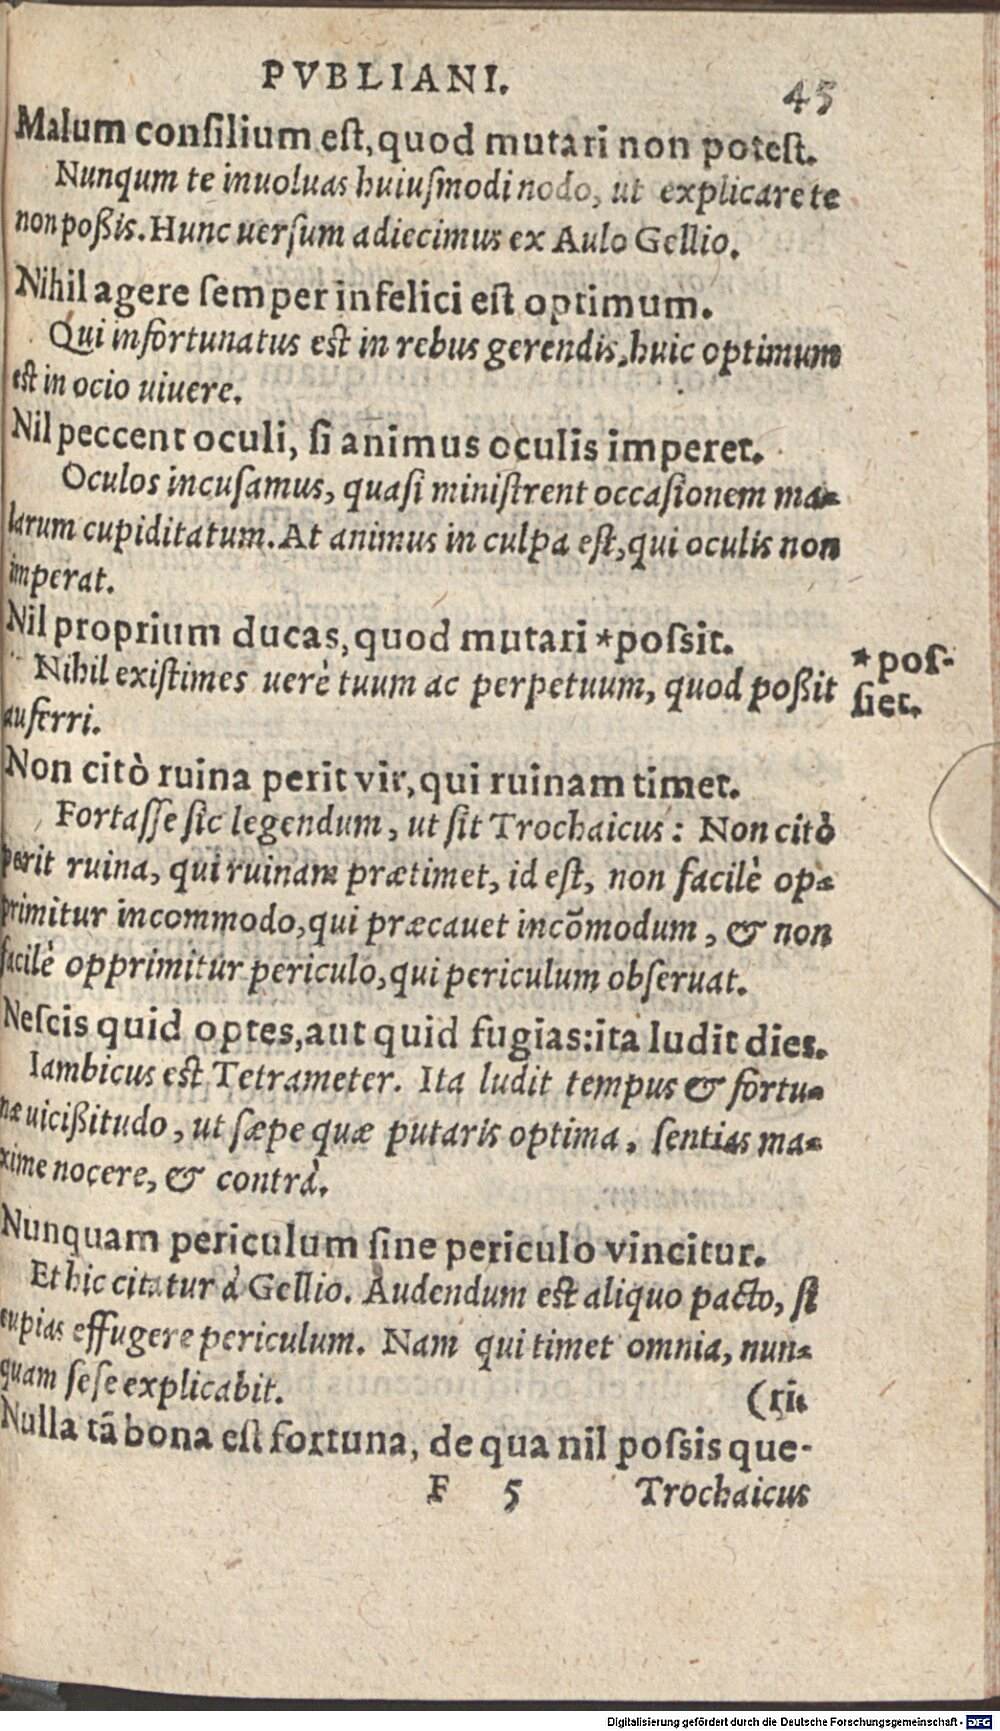 PVBLIANI.
45
Malum conſilium eſt, quod mutari non poteſt.
Nunqum te inuoluas huiuſmodi nodo, ut explicare te
non poßis. Hunc uerſum adiecimus ex Aulo Gellio.
Nihil agere ſemper infelici eſt optimum.
Qui infortunatus eſt in rebus gerendis, huic optimum
eſt in ocio uiuere.
Nil peccent oculi, ſi animus oculis imperet.
Oculos incuſamus, quaſi miniſtrent occaſionem ma-
larum cupiditatum. At animus in culpa eſt, qui oculis non
imperat.
Nil proprium ducas, quod mutari *poſsit.
*poſ-
ſiet.
Nihil exiſtimes uerè tuum ac perpetuum, quod poßit
auferri.
Non citò ruina perit vir, qui ruinam timet.
Fortaſſe ſic legendum, ut ſit Trochaicus: Non citò
perit ruina, qui ruinam prætimet, id eſt, non facilè op-
primitur incommodo, qui præcauet incõmodum, & non
facilè opprimitur periculo, qui periculum obſeruat.
Neſcis quid optes, aut quid fugias: ita ludit dies.
Iambicus eſt Tetrameter. Ita ludit tempus & fortu-
næ uicißitudo, ut ſæpe quæ putaris optima, ſentias ma-
xime nocere, & contrà.
Nunquam periculum ſine periculo vincitur.
Et hic citatur à Gellio. Audendum eſt aliquo pacto, ſi
cupias effugere periculum. Nam qui timet omnia, nun-
quam ſeſe explicabit.
(rit
Nulla tã bona eſt fortuna, de qua nil poſsis que-
F 5
Trochaicus
Digitalisierung gefördert durch die Deutsche Forschungsgemeinschaft - DFG